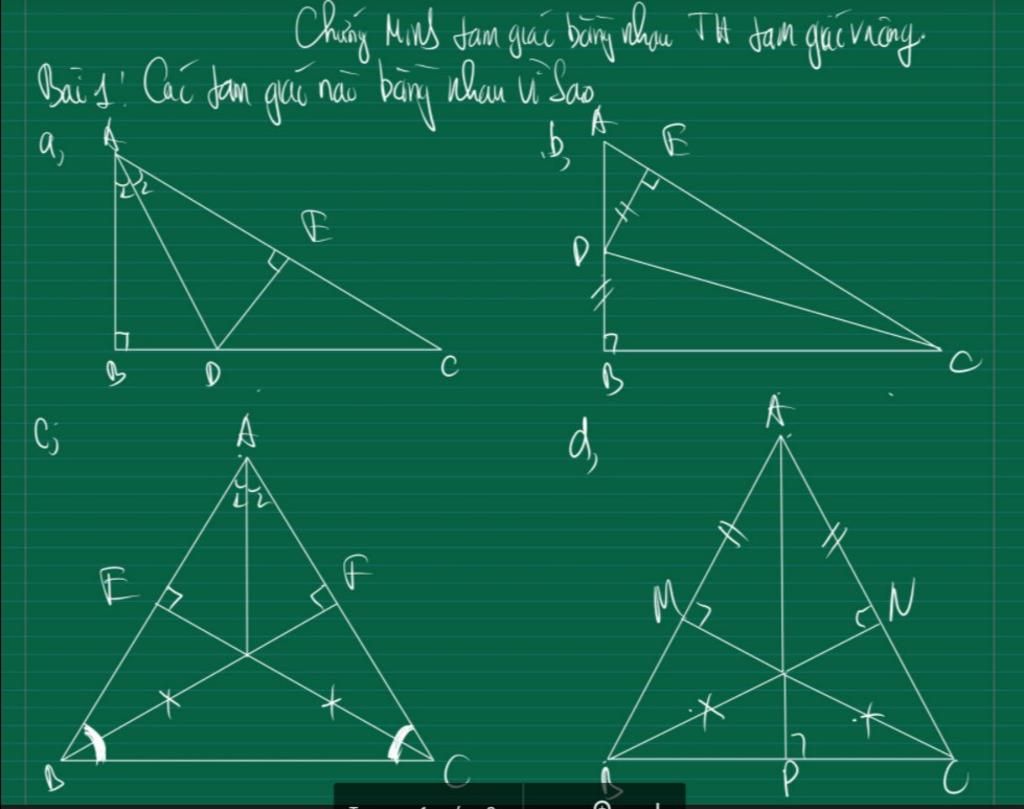 Chứng Minh tam giác bằng nhau TH tam giác vuông.
Bài 1! Các tam giác nào bằng nhau vì sao
a,
A
1 2
E
B D C
b,
A
E
D
B
C
c,
A
1 2
E F
B C
d,
A
M N
B P C